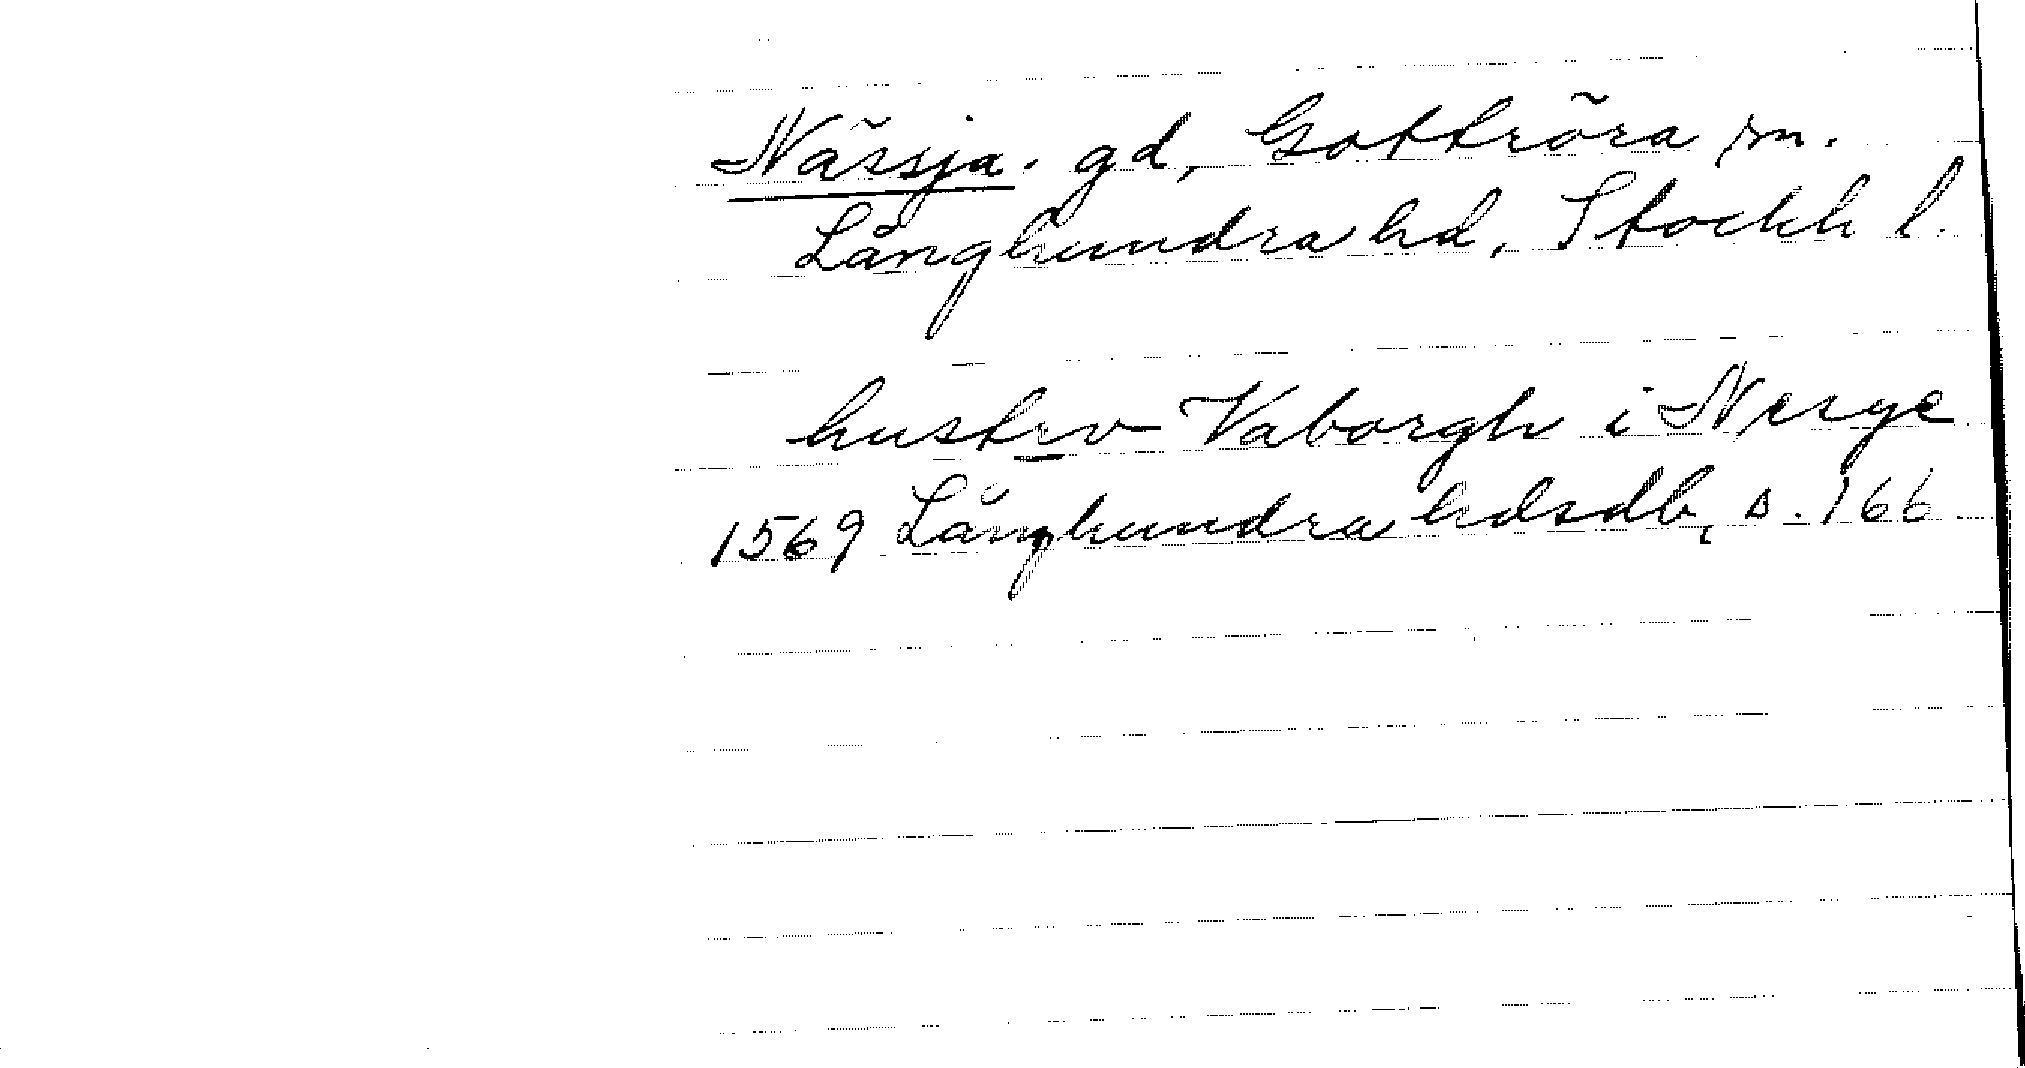 Nässja. gd, Gottröra sn.
Långhundra hd, Stockh l.
hustrv Vaborgh i Nersye
1569 Långhundra hdsdb, s. 166